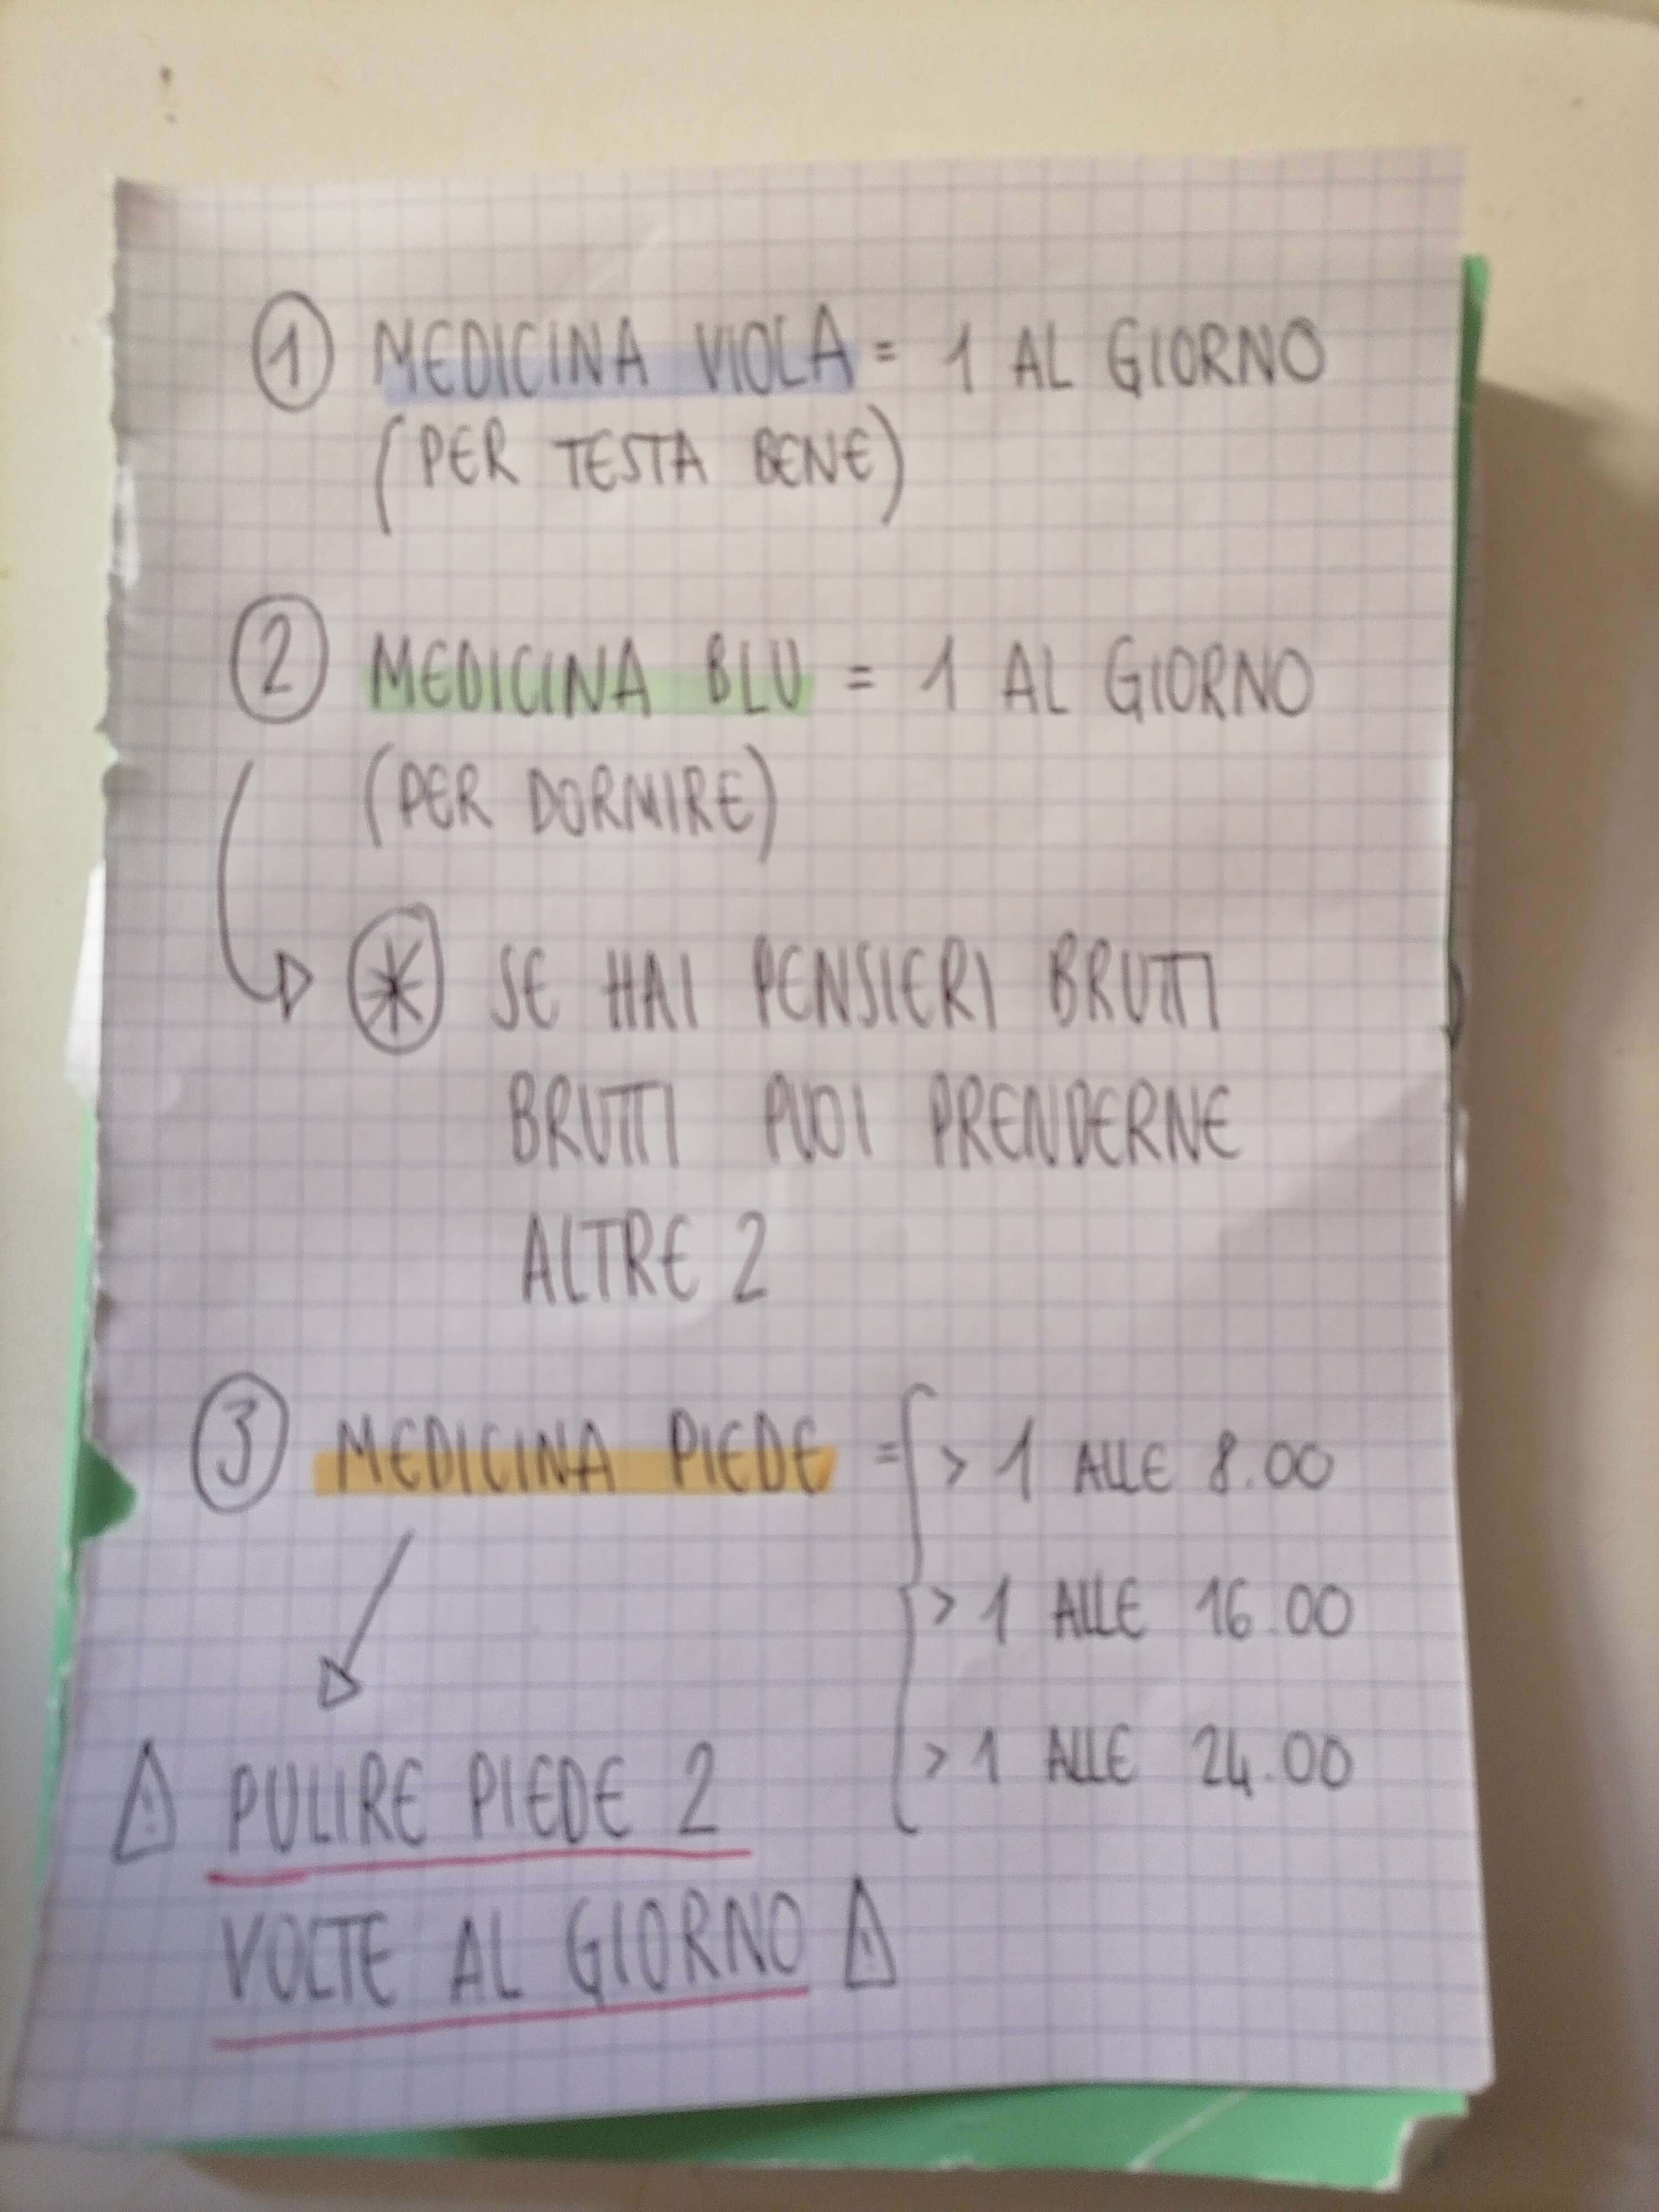 ① MEDICINA VIOLA = 1 AL GIORNO
(PER TESTA BENE)
② MEDICINA BLU = 1 AL GIORNO
(PER DORMIRE)
* SE HAI PENSIERI BRUTTI
BRUTTI PUOI PRENDERNE
ALTRE 2
③ MEDICINA PIEDE = > 1 ALLE 8.00
> 1 ALLE 16.00
> 1 ALLE 24.00
⚠ PULIRE PIEDE 2
VOLTE AL GIORNO ⚠